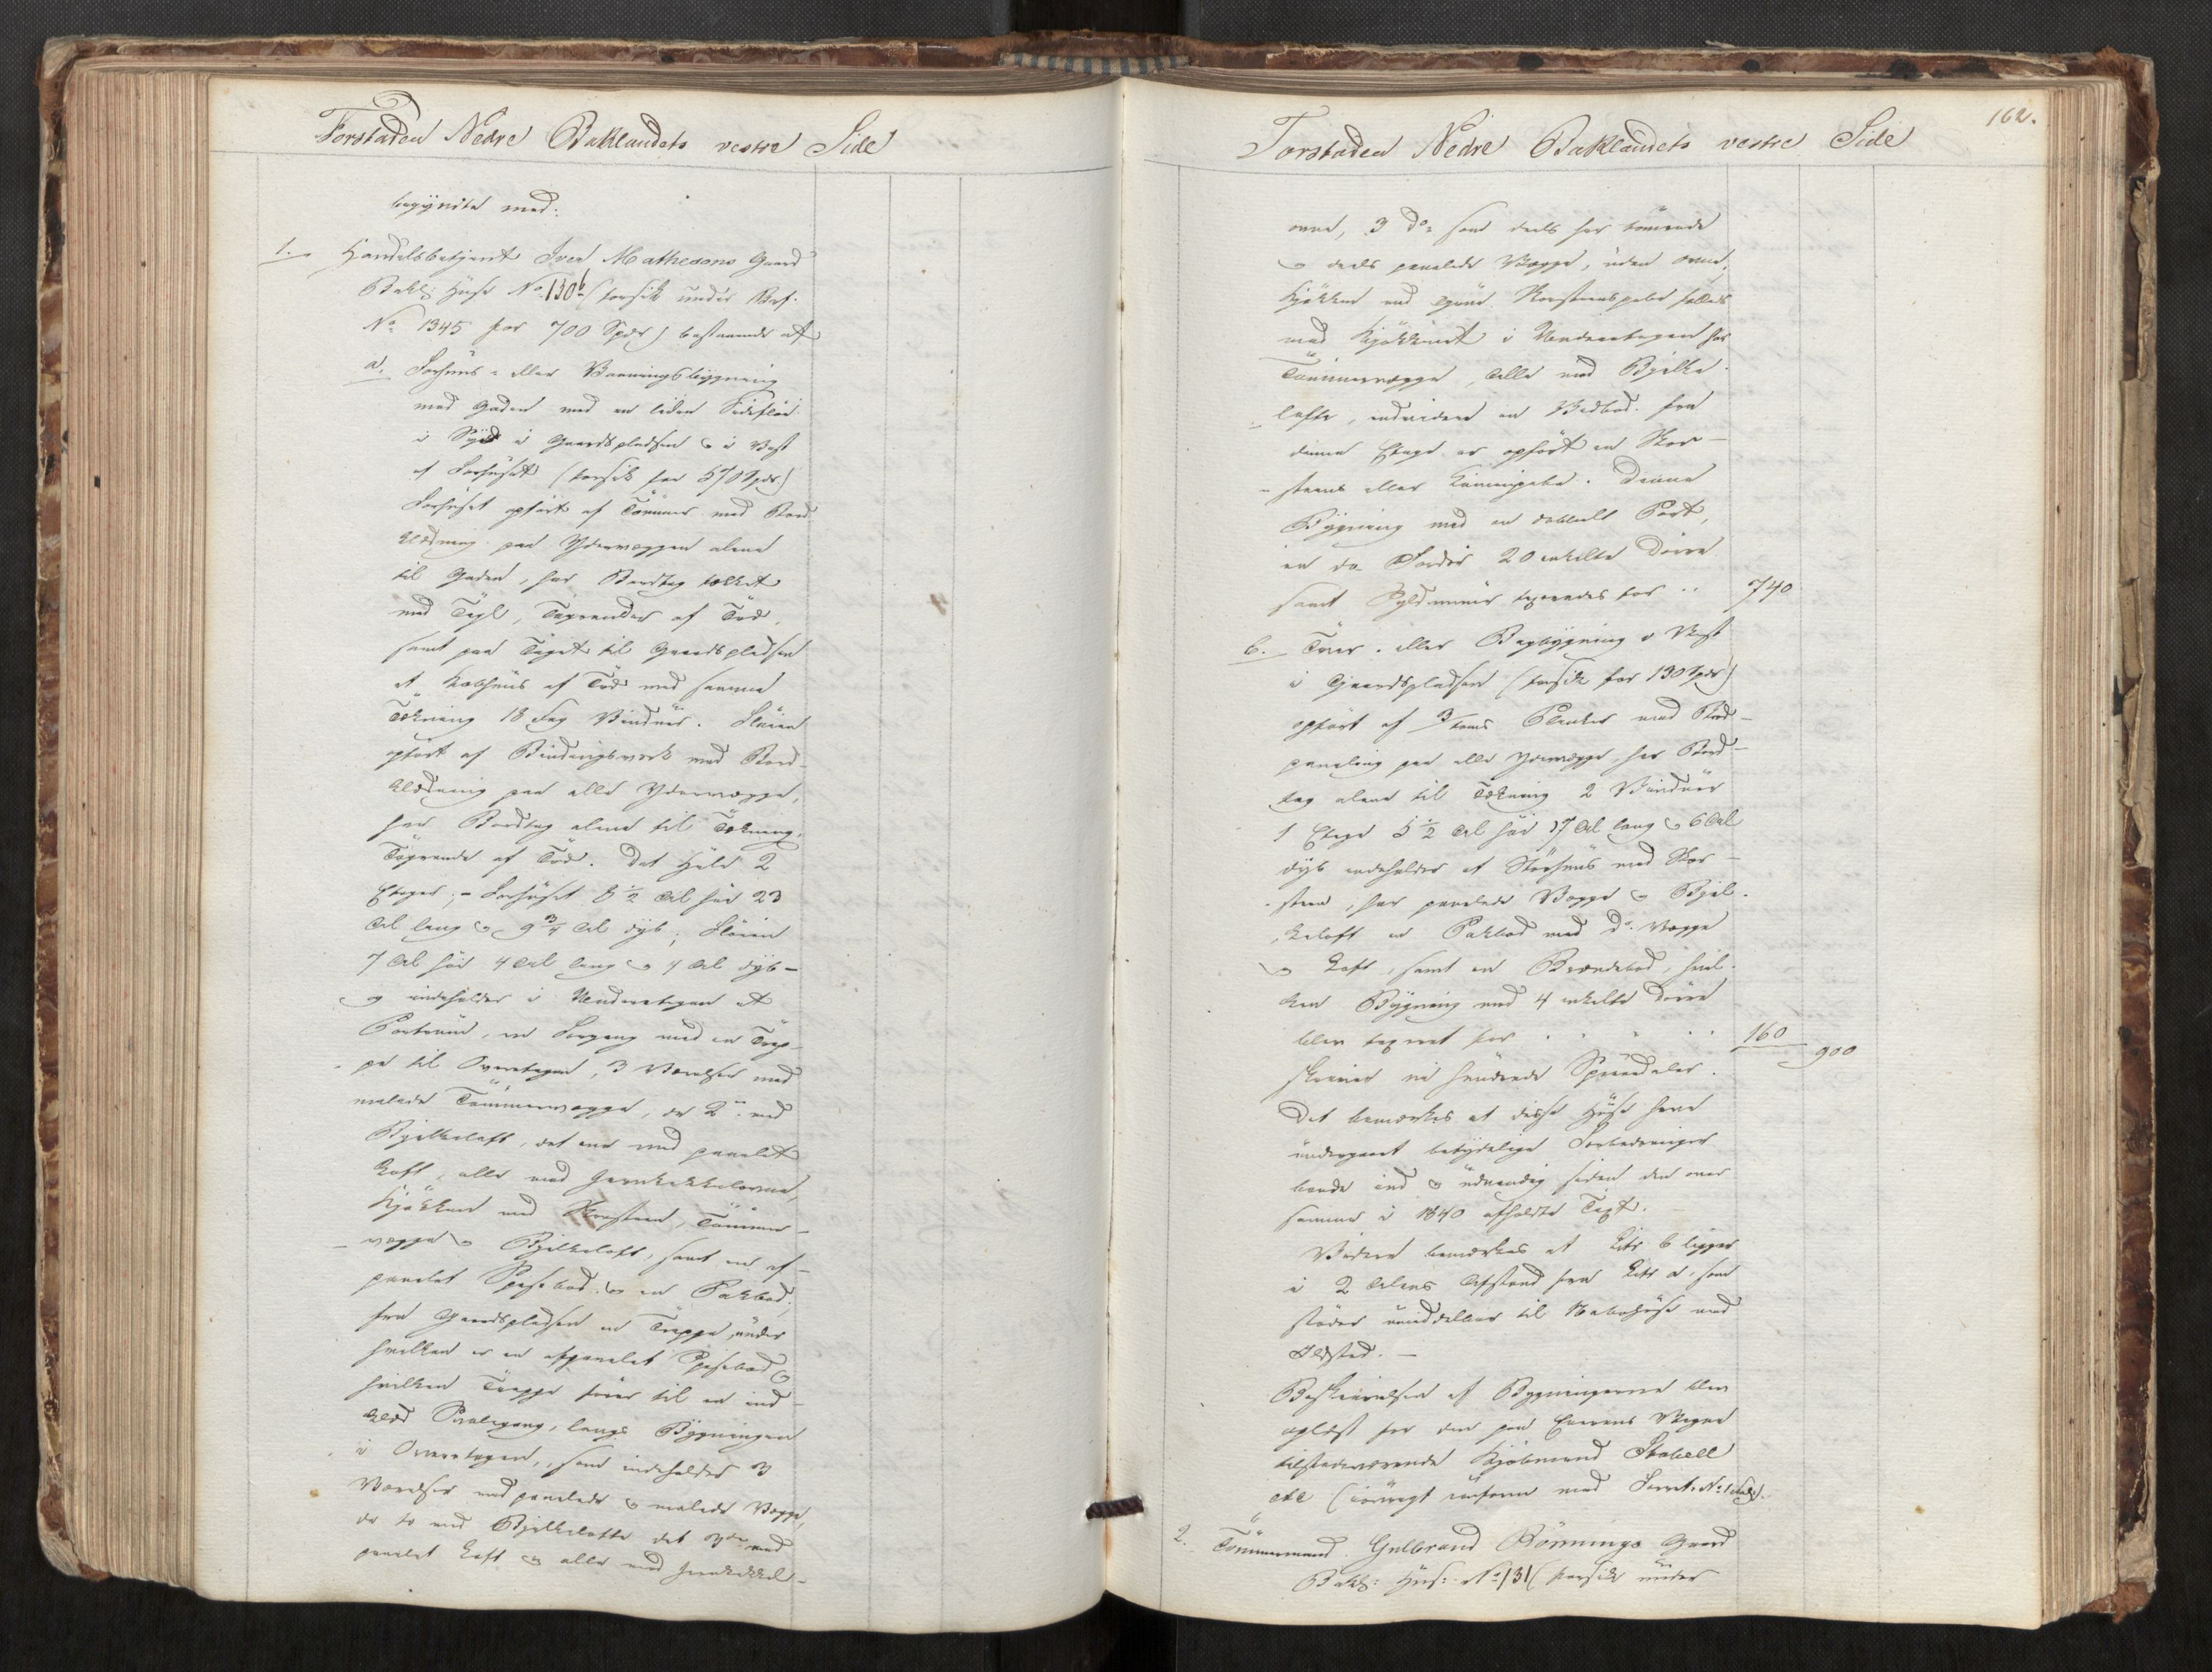 Forstaden Nedre Baklandets vestre Side
begyndte med:
1. Handelsbetjent Iver Mathesons Gaard
Bakl: Huse No 130b (forsik under Bef.
No 1345 for 700 Spdr) bestaaende af
a. Forhuus- eller Vaaningsbygning
mod Gaden med en liden Sidefløi
i Syd i Gaardspladsen & i Vest
af Forhuset (forsik for 570 Spdr)
Forhuset opført af Tømmer med Bord
klædning paa Ydervæggen alene
til Gaden, har Bordtag tækket
med Tegl, Tagrender af Træ,
samt paa Taget til Gaardspladsen
et Kobhuus af Træ med samme
Tækning 18 Fag Vinduer. Fløien
opført af Bindingsværk med Bord-
klædning paa alle Ydervægge,
har Bordtag alene til Tækning,
Tagrende af Træ. Det Hele 2
Etager; - Forhuset 8 1/2 Al høi 23
Al lang & 9 3/4 Al dyb; Fløien
7 Al høi 4 Al lang & 4 Al dyb -
og indeholder i Underetagen et
Portrum, en Forgang med en Trap-
pe til Overetagen, 3 Værelser med
malede Tømmervægge, de 2de med
Bjelkeloft, det ene med panelet
Loft, alle med Jernkakkelovne,
Kjøkken med Skorsteen, Tømmer-
vægge & Bjelkeloft, samt en af-
panelet Spisebod & en Pakbod;
fra Gaardspladsen en Trappe, under
hvilken er en afpanelet Spisebod &
hvilken Trappe fører til en ind-
klæd Svalegang, langs Bygningen
i Overetagen, som indeholder 3
Værelser med panelede & malede Vægge,
de to med Bjelkelofte det 3die med
panelet Loft & alle med Jernkakkel-
162.
Forstaden Nedre Baklandets vestre Side
ovne, 3 do som deels har tømrede
& deels panelede Vægge, uden Ovne,
Kjøkken med egen Skorsteenspibe fælles
med Kjøkkenet i Underetagen har
Tømmervægge, Alle med Bjelke-
lofte, endvidere en Vedbod. Fra
denne Etage er opført en Skor-
steens eller Kaminpibe. Denne
Bygning med en dobbelt Port,
en do Fordør 20 enkelte Dørre
samt Fyldmuur taxeredes for .. 740
b. Tver- eller Bagbygning i Vest
i Gaardspladsen (forsik for 130 Spdr)
opført af 3/toms Planker med Bord-
paneling paa alle Ydervægge, har Bord-
tag alene til Tækning 2 Vinduer
1 Etage 5 1/2 Al høi 17 Al lang & 6 Al
dyb indeholder et Størhuus med Skor-
steen, har panelede Vægge & Bjel-
keloft en Pakbod med do Vægge
& Loft, samt en Brændebod, hvil-
ken Bygning med 4 enkelte Dørre
blev taxeret for .. 160 900
skriver ni hundrede Speciedaler.
Det bemærkes at disse Huse have
undergaaet betydelige Forbedringer
baade ind & udvendig siden den over
samme i 1840 afholdte Taxt.
Videre bemærkes at Litr b ligger
i 2 Alens Afstand fra Litr a, som
støder umiddelbar til Nabohuse mod
Ildsted. -
Beskrivelsen af Bygningerne blev
oplæst for den paa Eierens Vegne
tilstedeværende Kjøbmand Stabell
etc (iøvrigt conform med Forret. No 1
2. Tømmermand Gulbrand Rønnings Gaard
Bakl: Huus: No 131 (forsik under